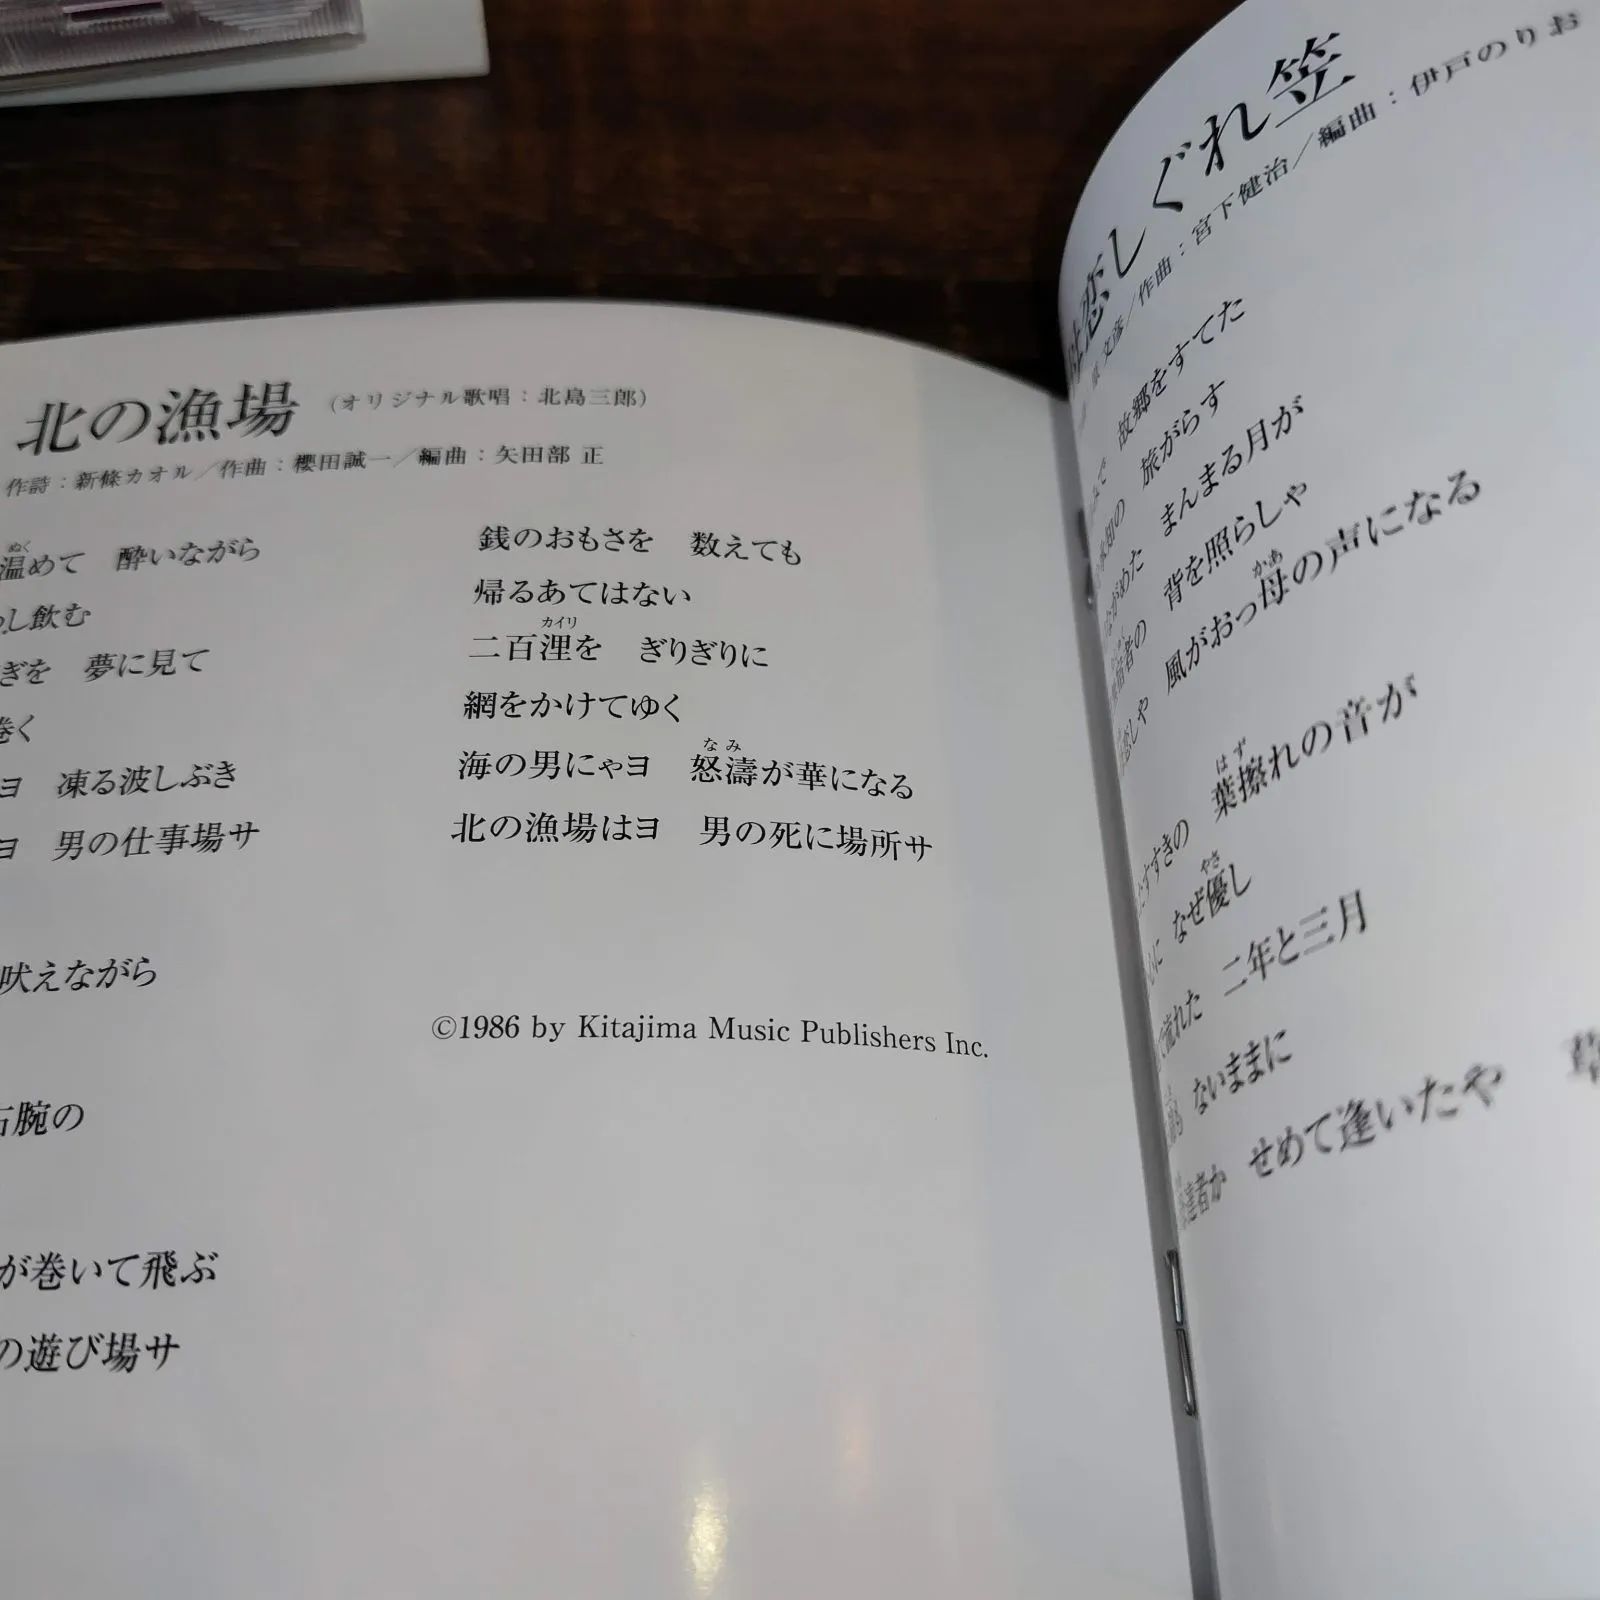 北の漁場 (オリジナル歌唱:北島三郎)
作詩:新條カオル/作曲:櫻田誠一/編曲:矢田部 正
ぬく
温めて 酔いながら
し飲む
ぎを 夢に見て
巻く
ヨ 凍る波しぶき
ヨ 男の仕事場サ
吠えながら
右腕の
が巻いて飛ぶ
の遊び場サ
銭のおもさを 数えても
帰るあてはない
カイリ
二百浬を ぎりぎりに
網をかけてゆく
海の男にゃヨ 怒濤が華になる
なみ
北の漁場はヨ 男の死に場所サ
©1986 by Kitajima Music Publishers Inc.
恋しぐれ笠
文彦/作曲:宮下健治/編曲:伊戸のりお
故郷をすてた
旅がらす
ながめた まんまる月が
背を照らしゃ
かあ
恋しや 風がおっ母の声になる
はず
すすきの 葉擦れの音が
やさ
なぜ優し
流れた 二年と三月
ないままに
せめて逢いたや